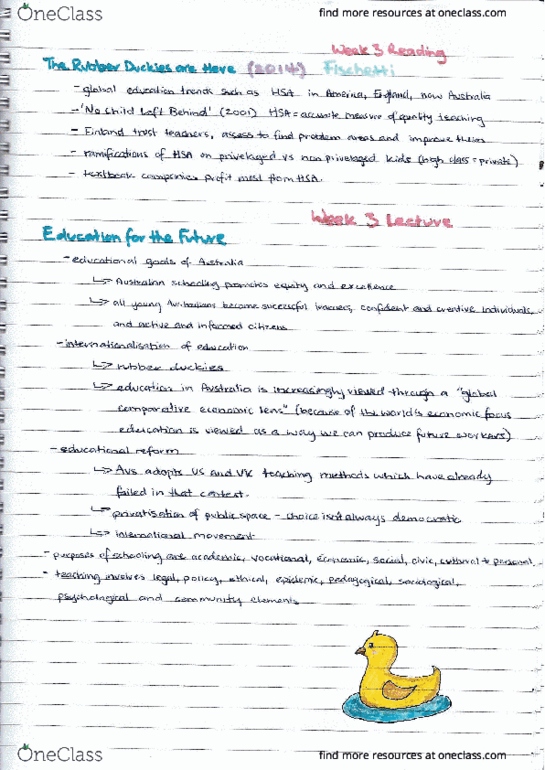 OneClass
find more resources at oneclass.com
Week 3 Reading
The Rubber Duckies are Here (2014) Fischetti
- global education trends such as HSA in America, England, now Australia
- 'No Child Left Behind' (2001) HSA = accurate measure of quality teaching
- Finland trust teachers, assess to find problem areas and improve them
- ramifications of HSA on privelaged vs non privelaged kids (high class = private)
- textbook companies profit most from HSA.
Week 3 Lecture
Education for the Future
- educational goals of Australia
↳ Australian schooling promotes equity and excellence
↳ all young Australians become successful learners, confident and creative individuals,
and active and informed citizens
- internationalisation of education
↳ rubber duckies
↳ education in Australia is increasingly viewed through a "global
comparative economic lens" (because of the world's economic focus
education is viewed as a way we can produce future workers)
- educational reform
↳ Aus adopts US and UK teaching methods which have already
failed in that context.
↳ privatisation of public space - choice isn't always democratic
↳ international movement
- purposes of schooling are academic, vocational, economic, social, civic, cultural + personal
- teaching involves legal, policy, ethical, epidemic, pedagogical, sociological,
psychological and community elements
OneClass
find more resources at oneclass.com